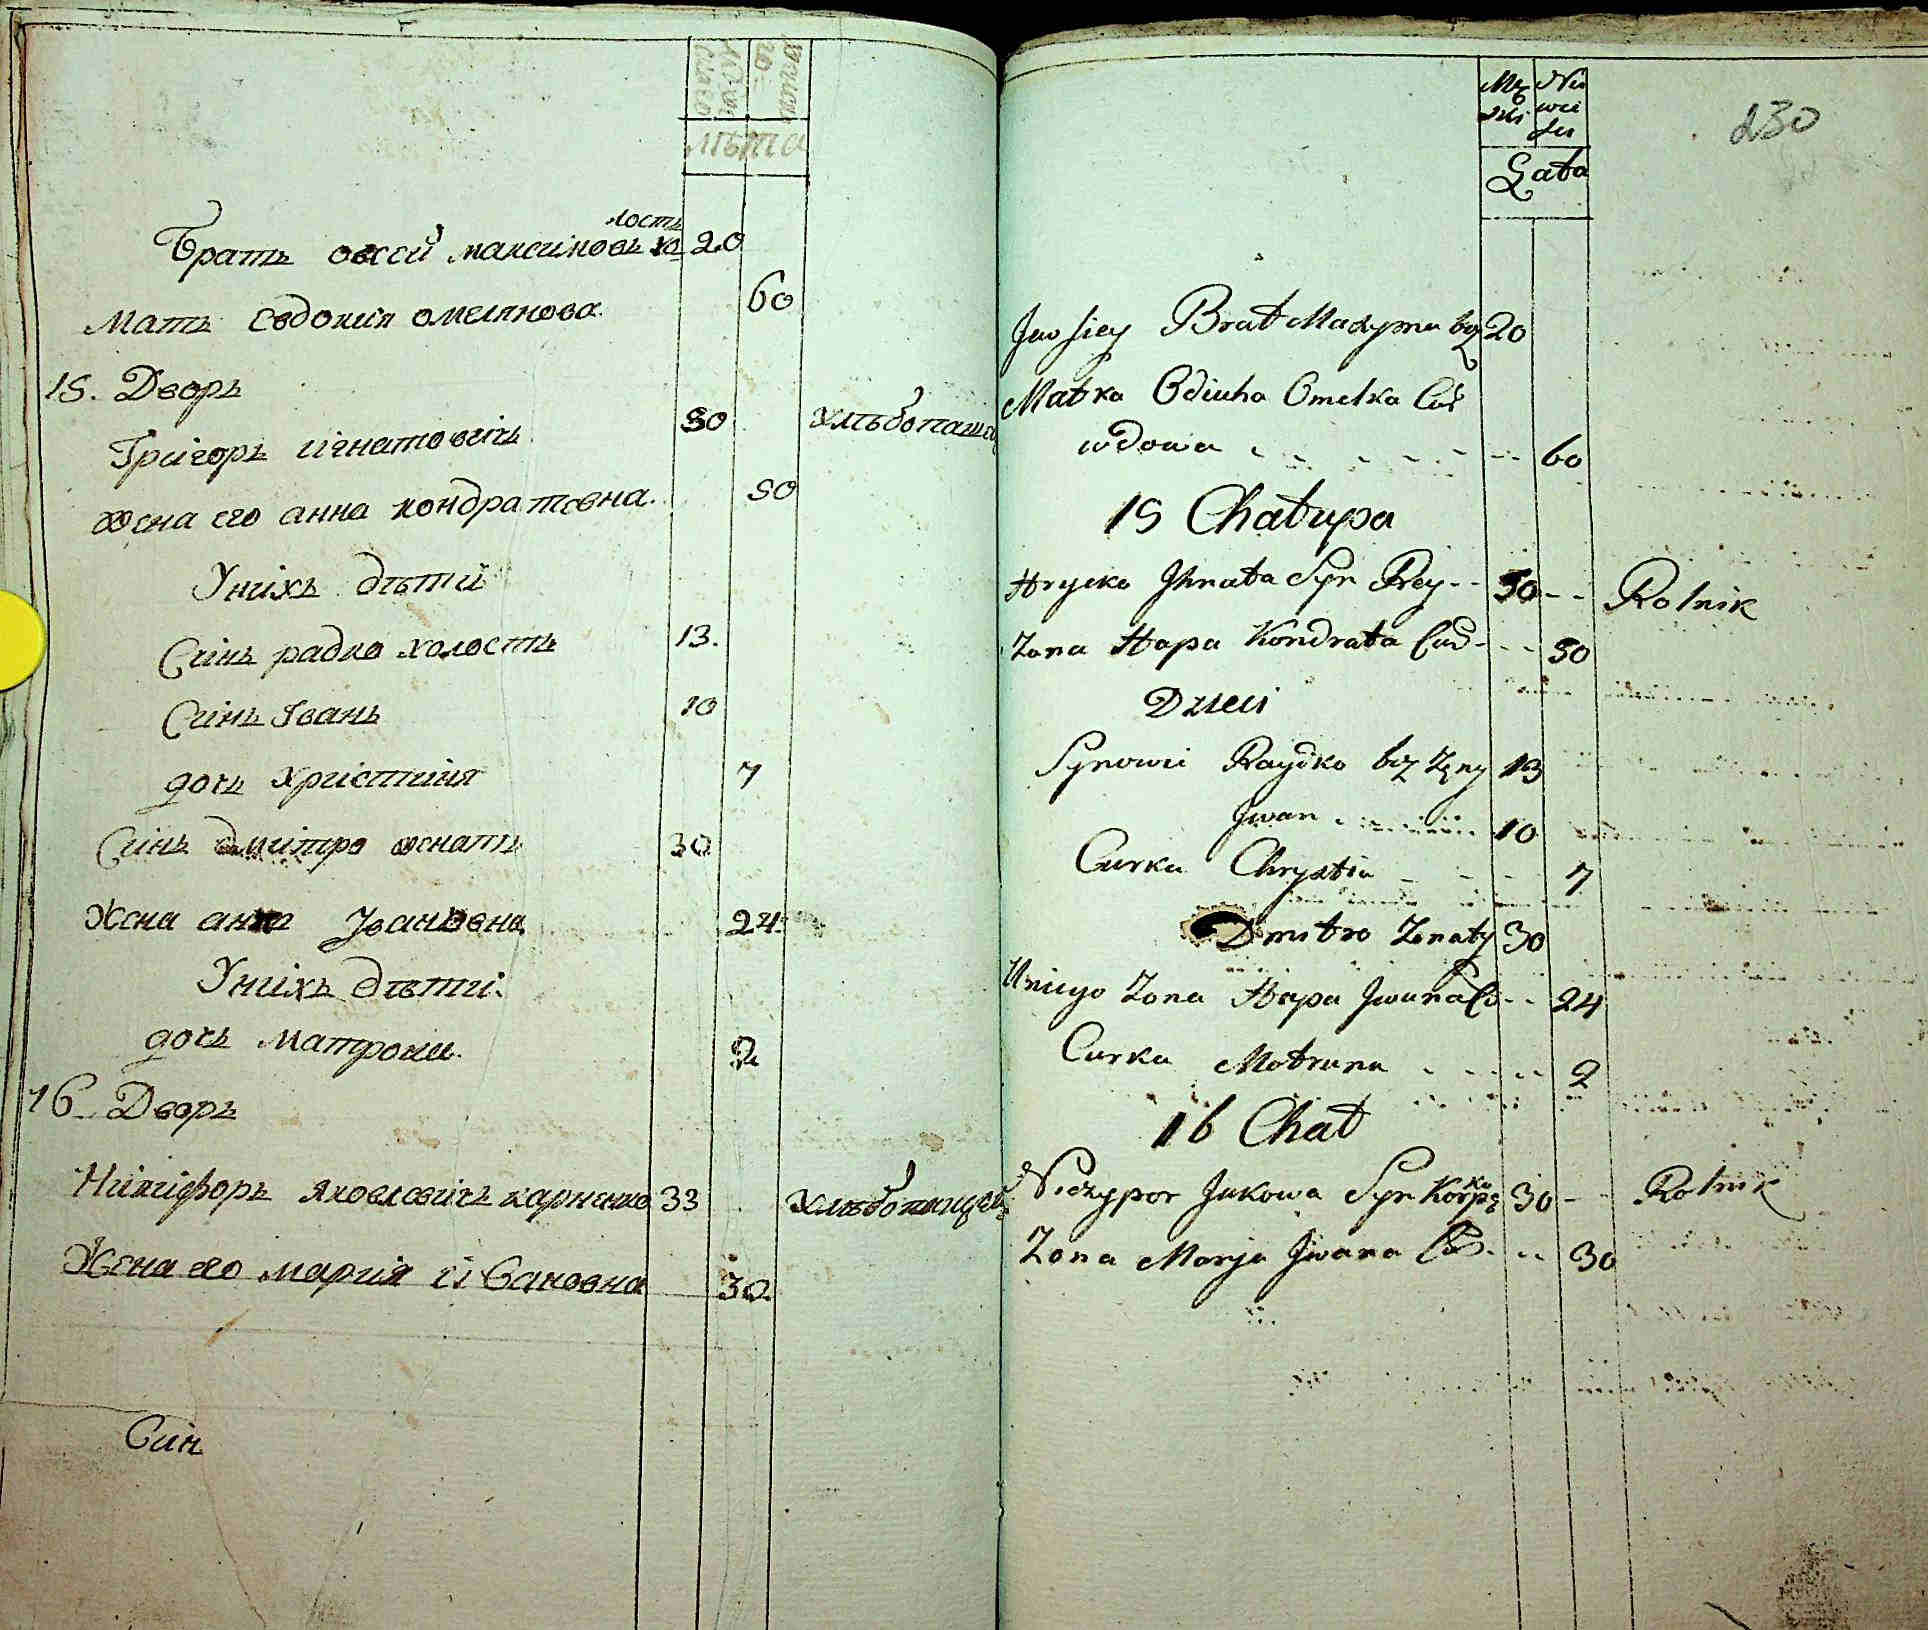 мужеска
женска
лѣта
Братъ овсей максимовъ хо
лостъ 20
Мать Євдокия омелянова. 60
15. Дворъ
Григоръ игнатовичъ 50 Хлѣбопашец
Жена его анна кондратовна. 50
У нихъ дѣти
Синъ радко холостъ 13.
Синъ Иванъ 10
дочь христиня 7
Синъ дмитро женатъ 30
Жена анна Ивановна 24.
У нихъ дѣти.
дочь матрона. 2
16. Дворъ
Никифоръ яковлевичъ карпенко 33 Хлѣбопашец
Жена его мария ивановна 30.
Син
230
Mę
zki
Nie
wei
Lata
Jewsiey Brat Maxyma bez 20
Matka Odiuha Omelka Cór
wdowa 60
15 Chałupa
Hrycko Ihnata Syn Rey 50 Rolnik
Zona Hapa Kondrata Cor 50
Dzieci
Synowie Raydko bez Zeny 13
Jwan 10
Curka Chrystia 7
Dmitro Zenaty 30
U niego Zona Hapa Jwana Co 24
Curka Motruna 2
16 Chat
Niczypor Jakowa Syn Korpę
ko 30 Rolnik
Zona Marja Jwana Co 30